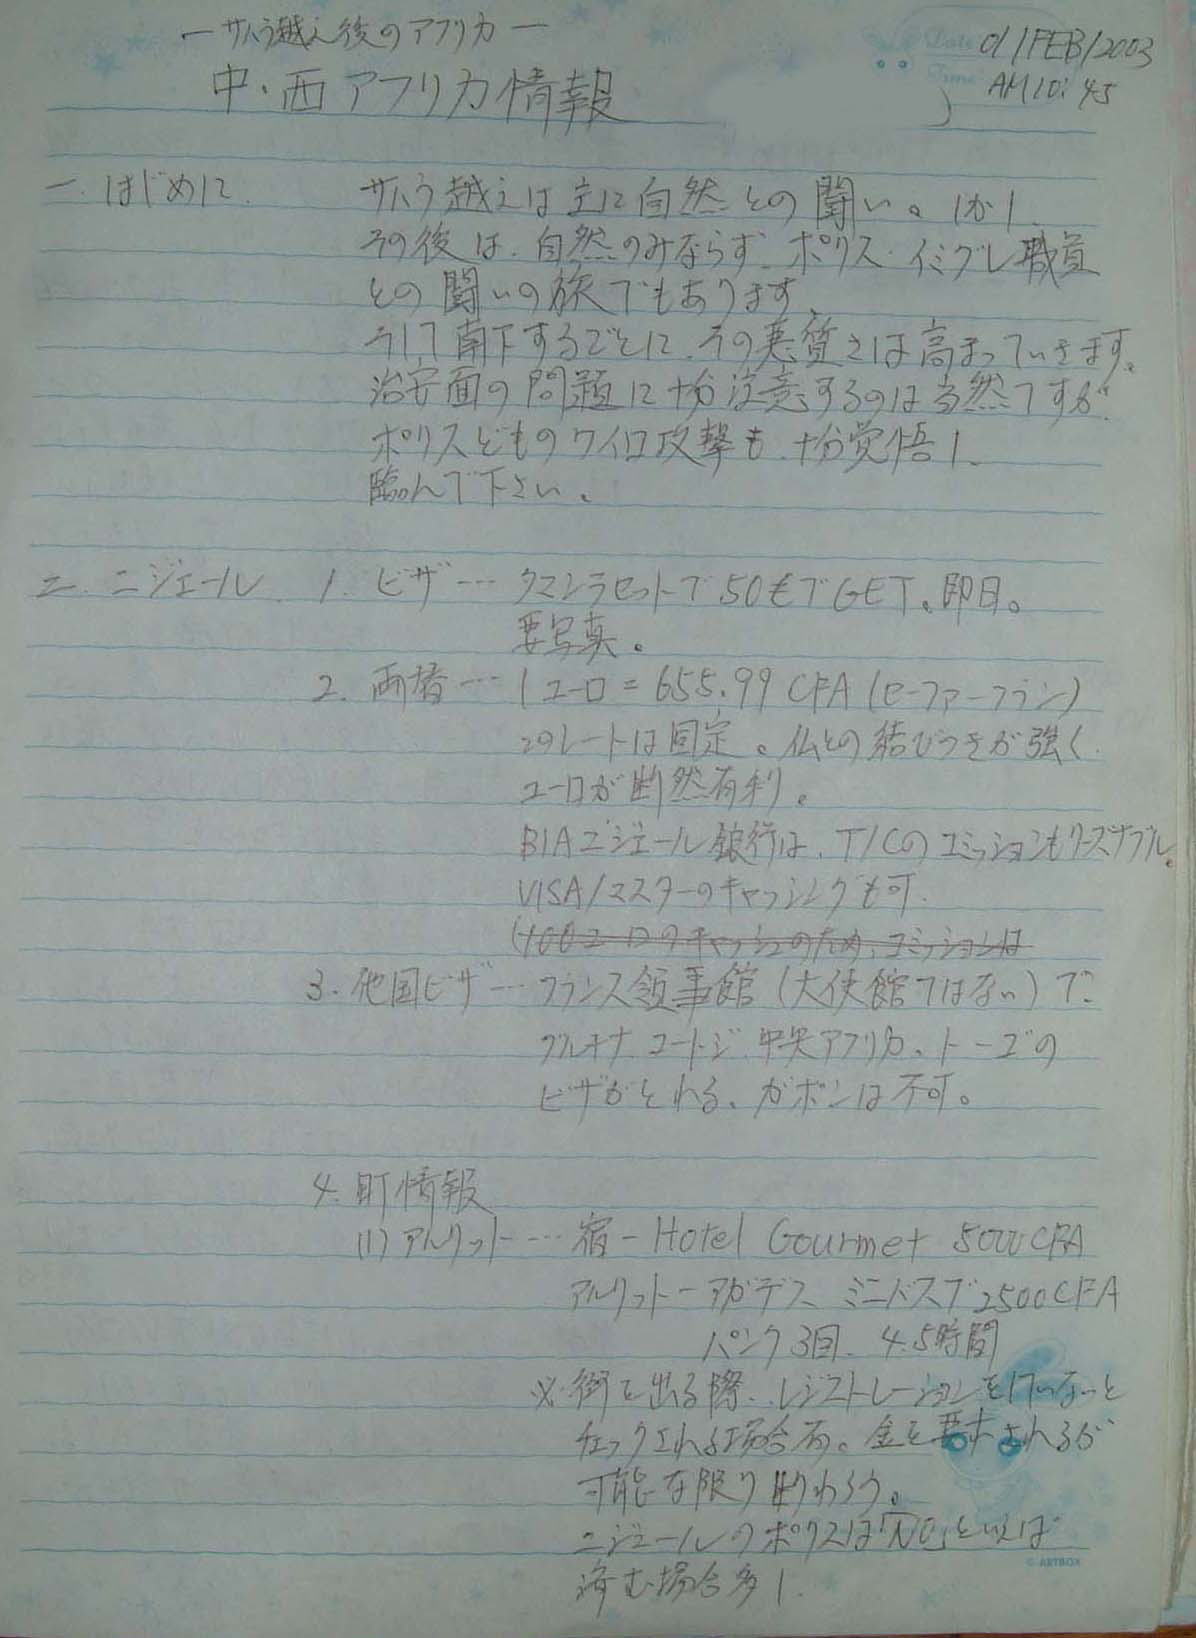 ーサハラ越え後のアフリカー
Date 01/FEB/2003
Time AM10:45
中・西アフリカ情報
一. はじめに. サハラ越えは主に自然との闘い。しかし、
その後は、自然のみならず、ポリス・イミグレ職員
との闘いの旅でもあります。
そして南下するごとに、その悪質さは高まっていきます。
治安面の問題に十分注意するのは当然ですが、
ポリスどものワイロ攻撃も、十分覚悟し、
臨んで下さい。
二. ニジェール 1. ビザ… タマンラセットで50€でGET。即日。
要写真。
2. 両替… 1ユーロ=655.99 CFA (セーファーフラン)
このレートは固定。仏との結びつきが強く、
ユーロが断然有利。
BIAニジェール銀行は、T/Cのコミッションもリーズナブル。
VISA/マスターのキャッシングも可.
(400ユーロのキャッシュのため、コミッションは
3. 他国ビザ… フランス領事館(大使館ではない)で、
ブルキナ コートジ 中央アフリカ、トーゴの
ビザがとれる。ガボンは不可。
4. 町情報
(1) アルリット… 宿-Hotel Gourmet 5000CFA
アルリットーアガデス ミニバスで2500CFA
パンク3回. 4.5時間
※街を出る際、レジストレーションをしていないと
チェックされる場合有。金を要求されるが
可能な限り断わろう。
ニジェールのポリスは「NO」といえば
済む場合多し.
© ARTBOX